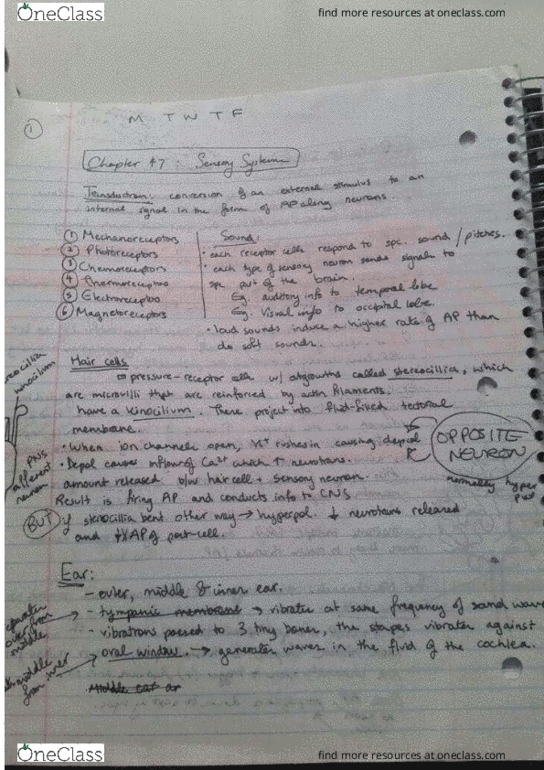 OneClass
find more resources at oneclass.com
M T W T F
1
Chapter 47: Sensory Systems
Transduction: conversion of an external stimulus to an
internal signal in the form of AP along neurons.
① Mechanoreceptors
② Photoreceptors
③ Chemoreceptors
④ Thermoreceptors
⑤ Electroreceptors
⑥ Magnetoreceptors
Sound:
• each receptor cells respond to spc. sound / pitches.
• each type of sensory neuron sends signals to
spc part of the brain.
Eg. auditory info to temporal lobe
Eg. Visual info to occipital lobe.
• loud sounds induce a higher rate of AP than
do soft sounds.
Hair cells
pressure-receptor cells w/ outgrowths called stereocillica, which
are microvilli that are reinforced by actin filaments.
have a kinocilium. These project into fluid-filled tectorial
membrane.
• When ion channels open, K+ rushes in causing depol
• Depol causes inflow of Ca2+ which ↑ neurotrans.
amount released b/w hair cell + sensory neuron.
Result is firing AP and conducts info to CNS
OPPOSITE NEURON
normally hyper
BUT if stereocillia bent other way → hyperpol. ↓ neurotrans released
and AP of post-cell.
kinocilium
PNS
afferent
neuron
Ear:
- outer, middle & inner ear.
- tympanic membrane → vibrates at same frequency of sound wave
- vibrations passed to 3 tiny bones, the stapes vibrates against
oval window. → generates waves in the fluid of the cochlea.
outer from
middle
middle
from inner
Middle ear
OneClass
find more resources at oneclass.com